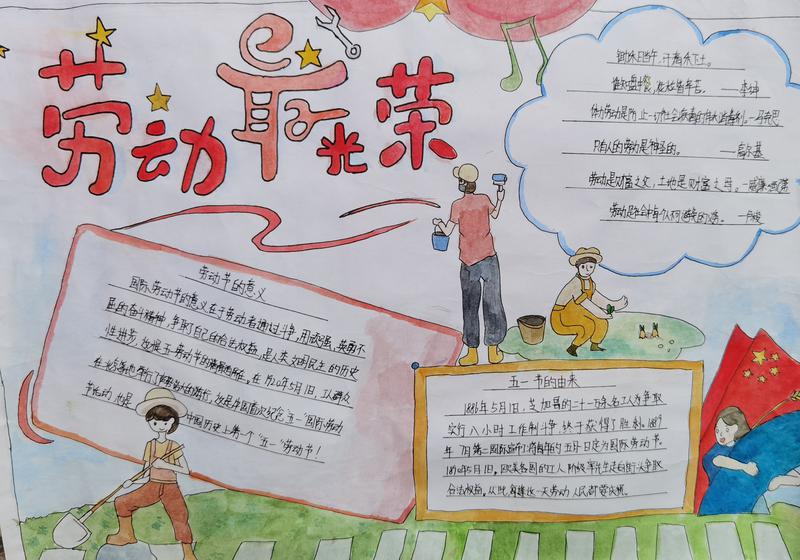 劳动最光荣
锄禾日当午,汗滴禾下土。
谁知盘中餐,粒粒皆辛苦。 ——李绅
体力劳动是防止一切社会病毒的伟大消毒剂。—马克思
只有人的劳动是神圣的。 ——高尔基
劳动是财富之父,土地是财富之母。—威廉·配第
劳动是社会中每个人不可避免的义务。 —卢梭
劳动节的意义
国际劳动节的意义在于劳动者通过斗争,用顽强、英勇不
屈的奋斗精神,争取了自己的合法权益,是人类文明民主的历史
性进步,
在1920年5月1日,工人群众
中国历史上第一个“五一”劳动节!
五一节的由来
1886年5月1日,芝加哥的二十一万余名工人为争取
实行八小时工作制斗争,终于获得了胜利。1889
年7月第二国际宣布将每年的五月一日定为国际劳动节。
1890年5月1日,欧美各国的工人阶级率先走向街头争取
合法权益。从此每逢这一天劳动人民都要庆祝。